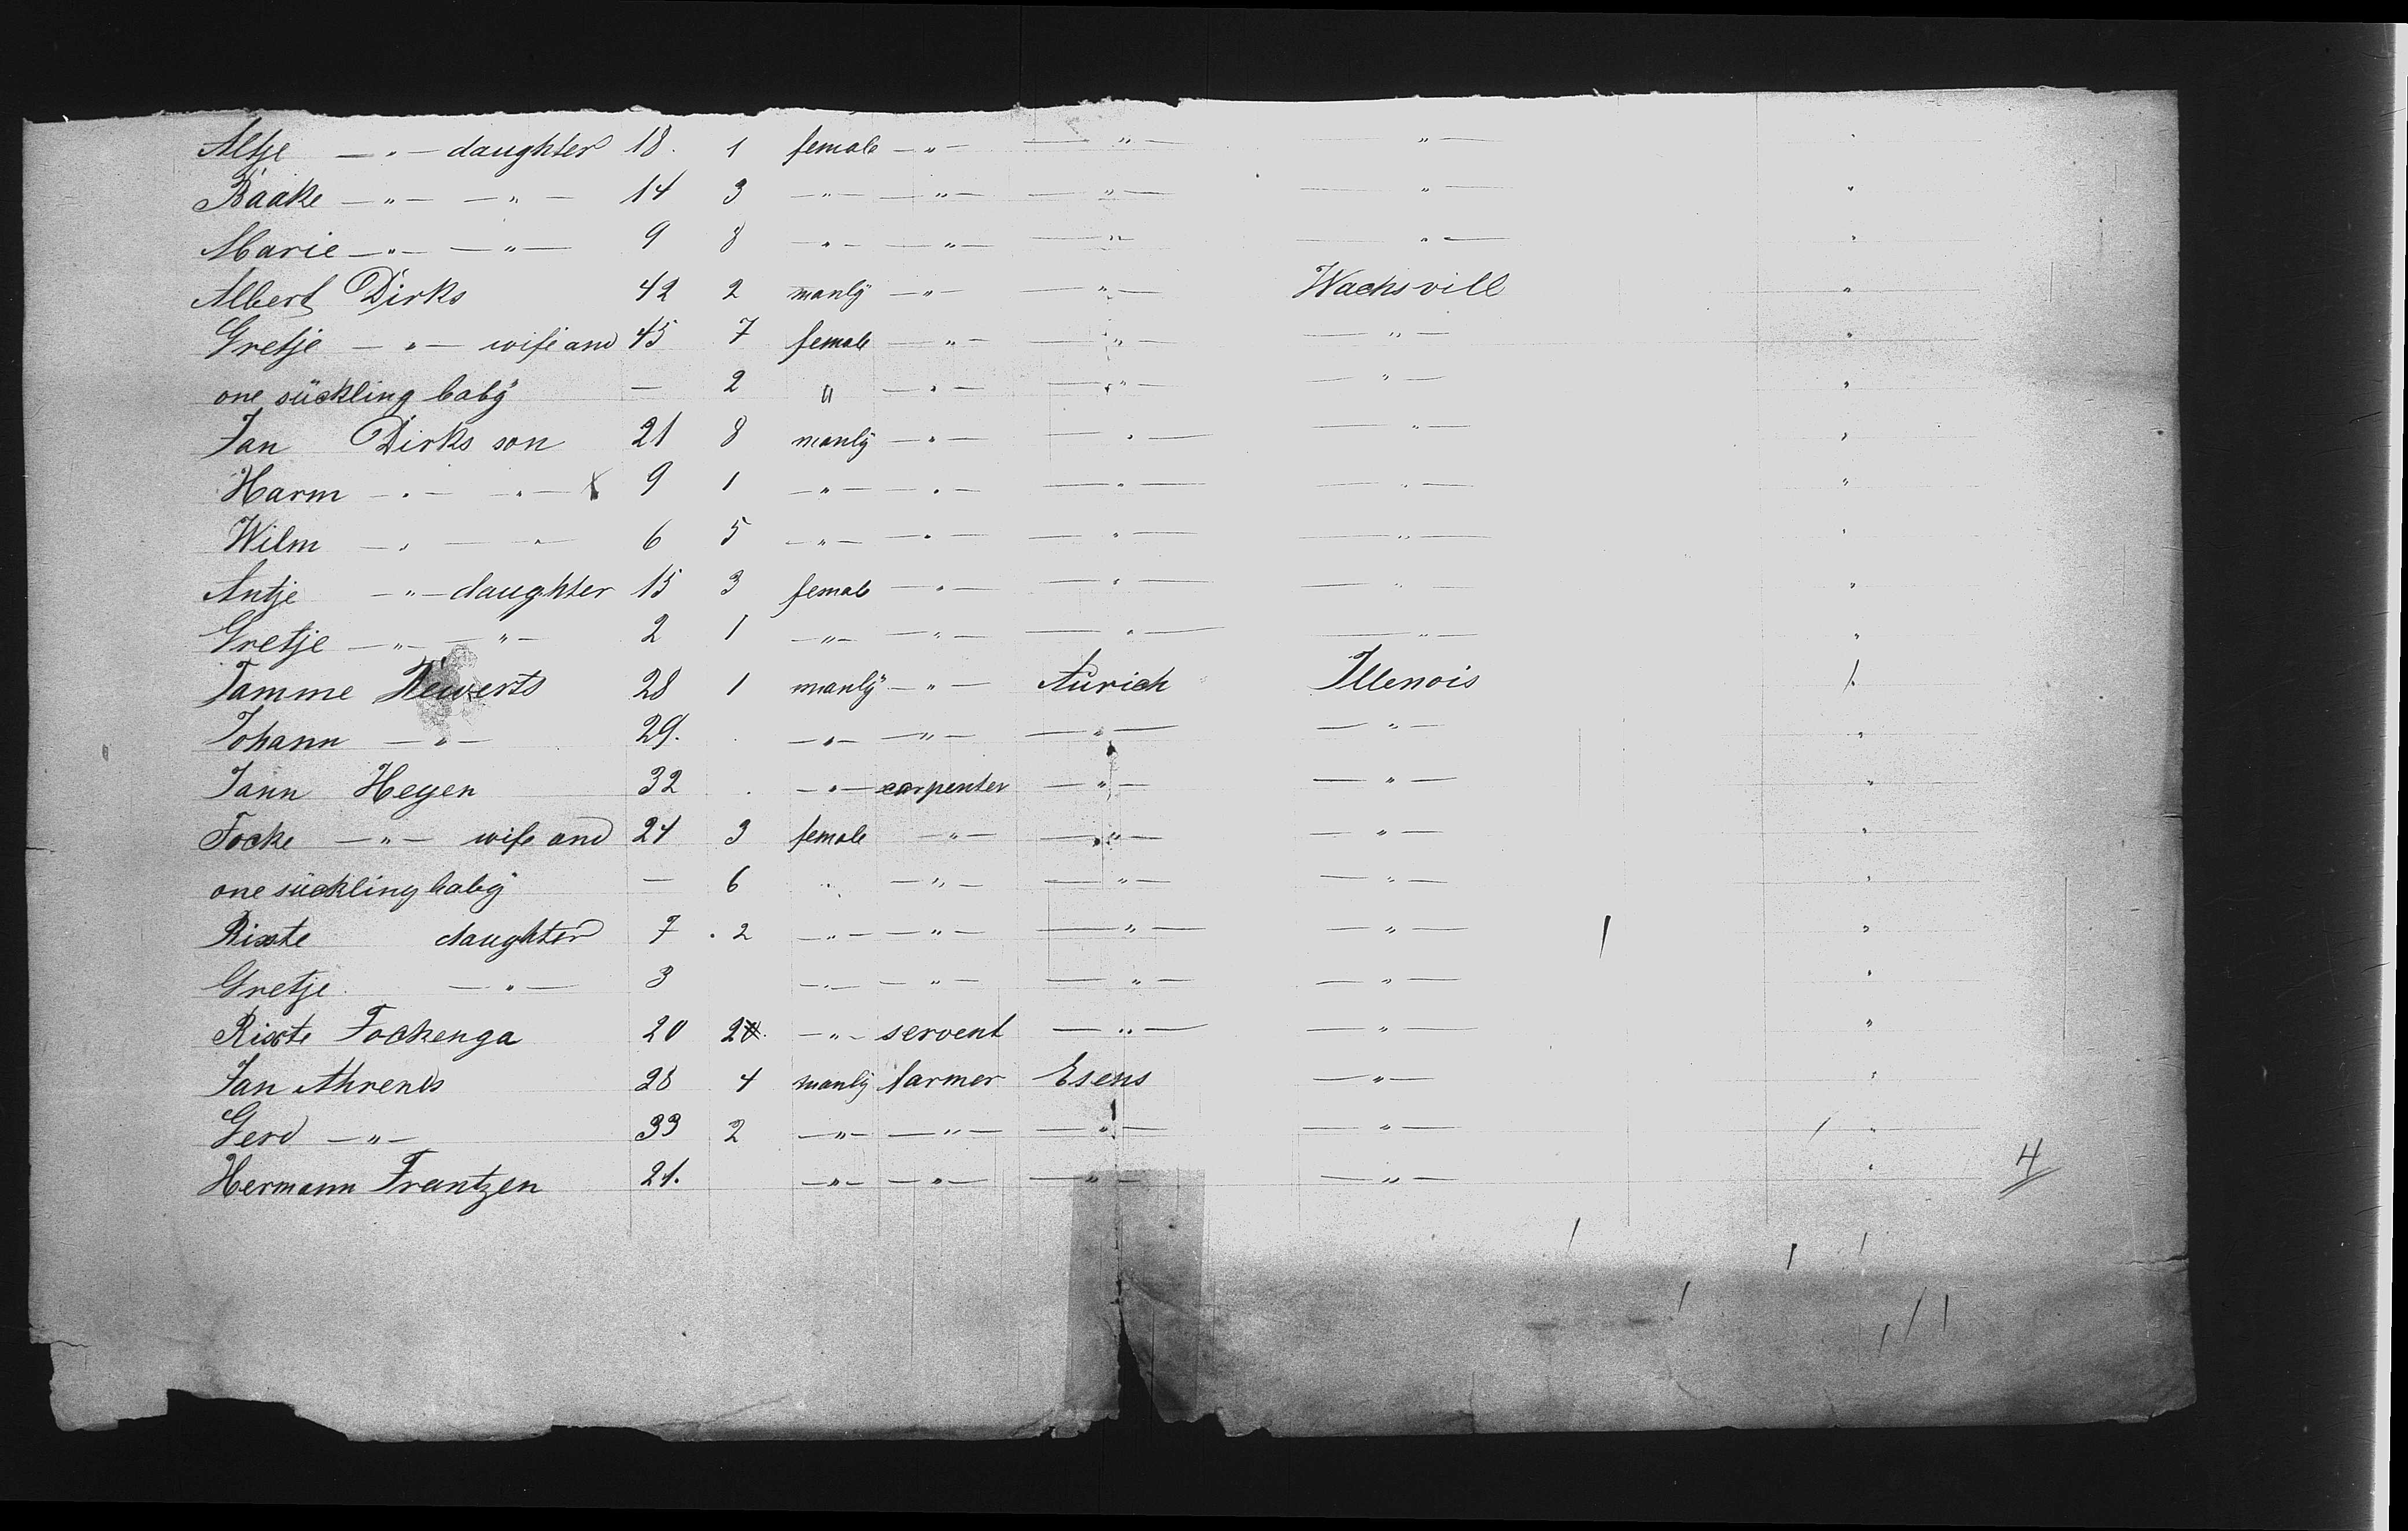 Altje — " — daughter 18. 1 female — " — — " — — " — "
Baake — " — — " — 14 3 — " — — " — — " — — " — "
Marie — " — — " — 9 8 — " — — " — — " — — " — "
Albert Dirks 42 2 manly — " — — " — Wachsvill "
Gretje — " — wife and 45 7 female — " — — " — — " — "
one sückling baby — 2 " — " — — " — — " — "
Jan Dirks son 21 8 manly — " — — " — — " — "
Harm — " — — " — 9 1 — " — — " — — " — — " — "
Wilm — " — — " — 6 5 — " — — " — — " — — " — "
Antje — " — daughter 15 3 female — " — — " — — " — "
Gretje — " — — " — 2 1 — " — — " — — " — — " — "
Tamme 28 1 manly — " — Aurich Illenois 1.
Johann — " — 29. — " — — " — — " — — " — "
Jann Heyen 32 — " — carpenter — " — — " — "
Focke — " — wife and 24 3 female — " — — " — — " — "
one sückling baby — 6 " — " — — " — — " — "
Rixte daughter 7 2 — " — — " — — " — — " — "
Gretje — " — 3 — " — — " — — " — — " — "
Rixte Fockenga 20 2 — " — servent — " — — " — "
Jan Ahrends 28 4 manly farmer Esens — " — "
Gerd — " — 33 2 — " — — " — — " — — " — "
Hermann Frantzen 21. — " — — " — — " — — " — "
4